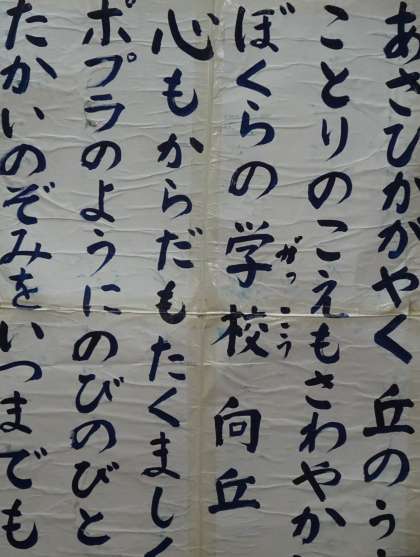 あさひかがやく 丘のう
ことりのこえもさわやか
ぼくらの学校 向丘
がっこう
心もからだもたくましく
ポプラのようにのびのびと
たかいのぞみをいつまでも